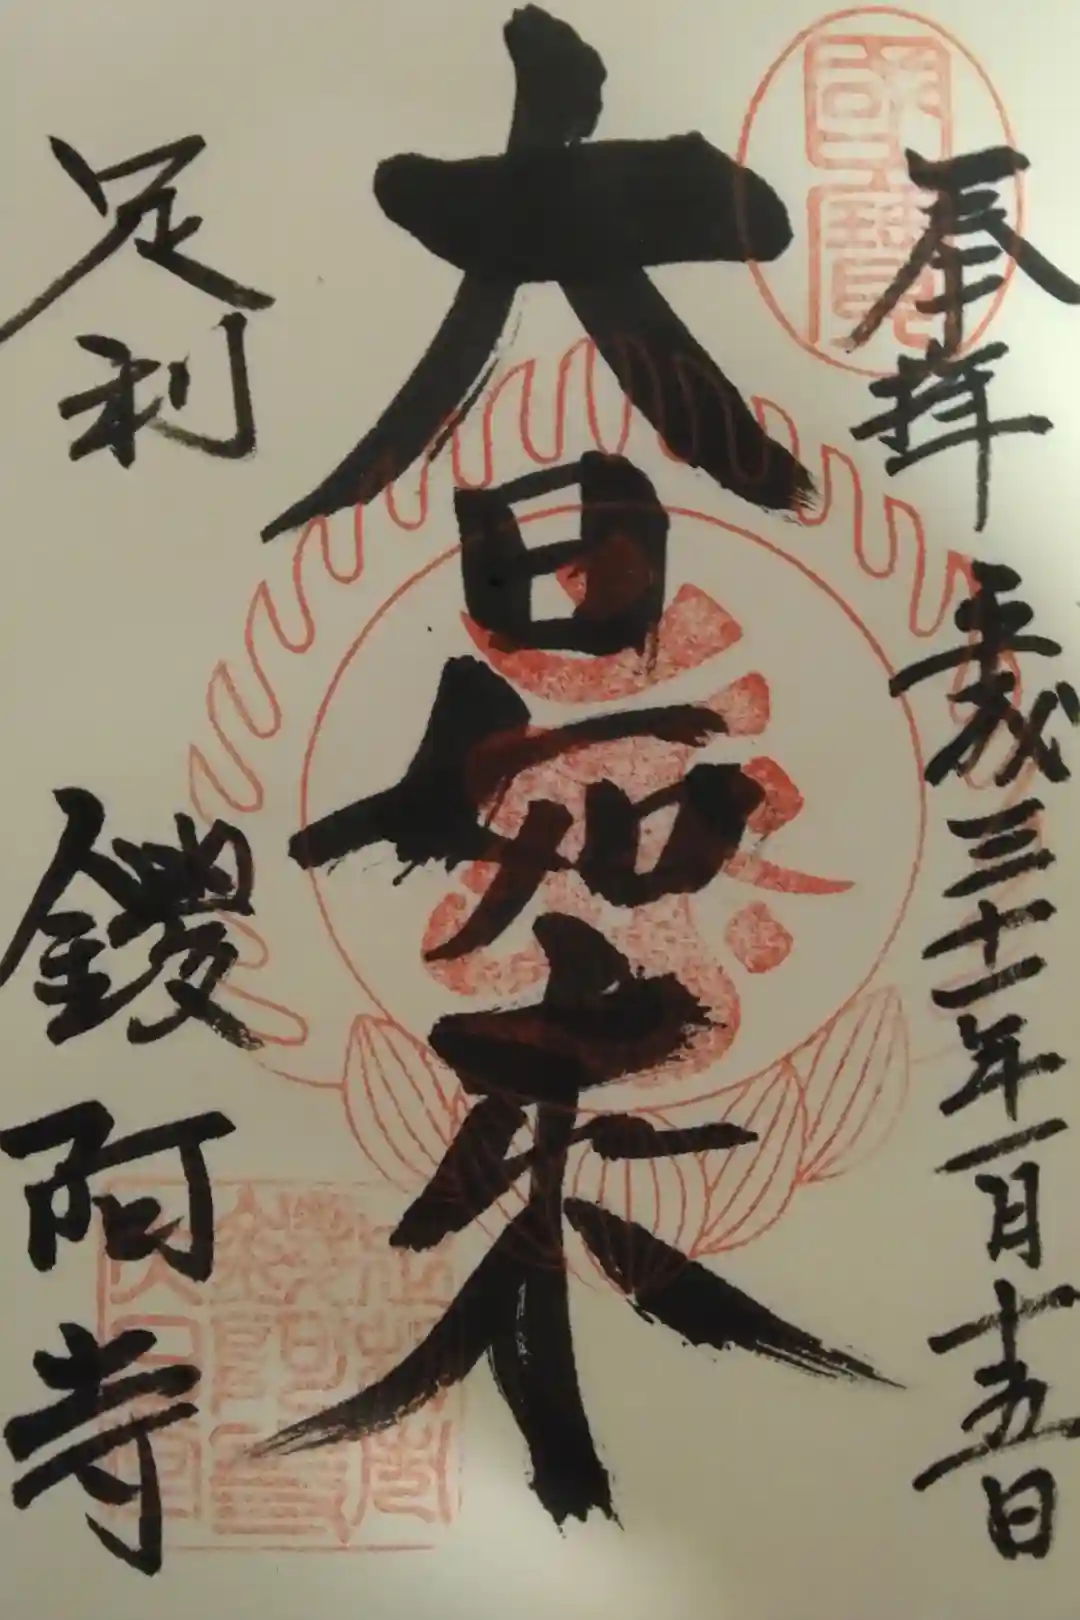 奉拝
平成三十一年一月十五日
大日如来
足利
鑁阿寺
國寶